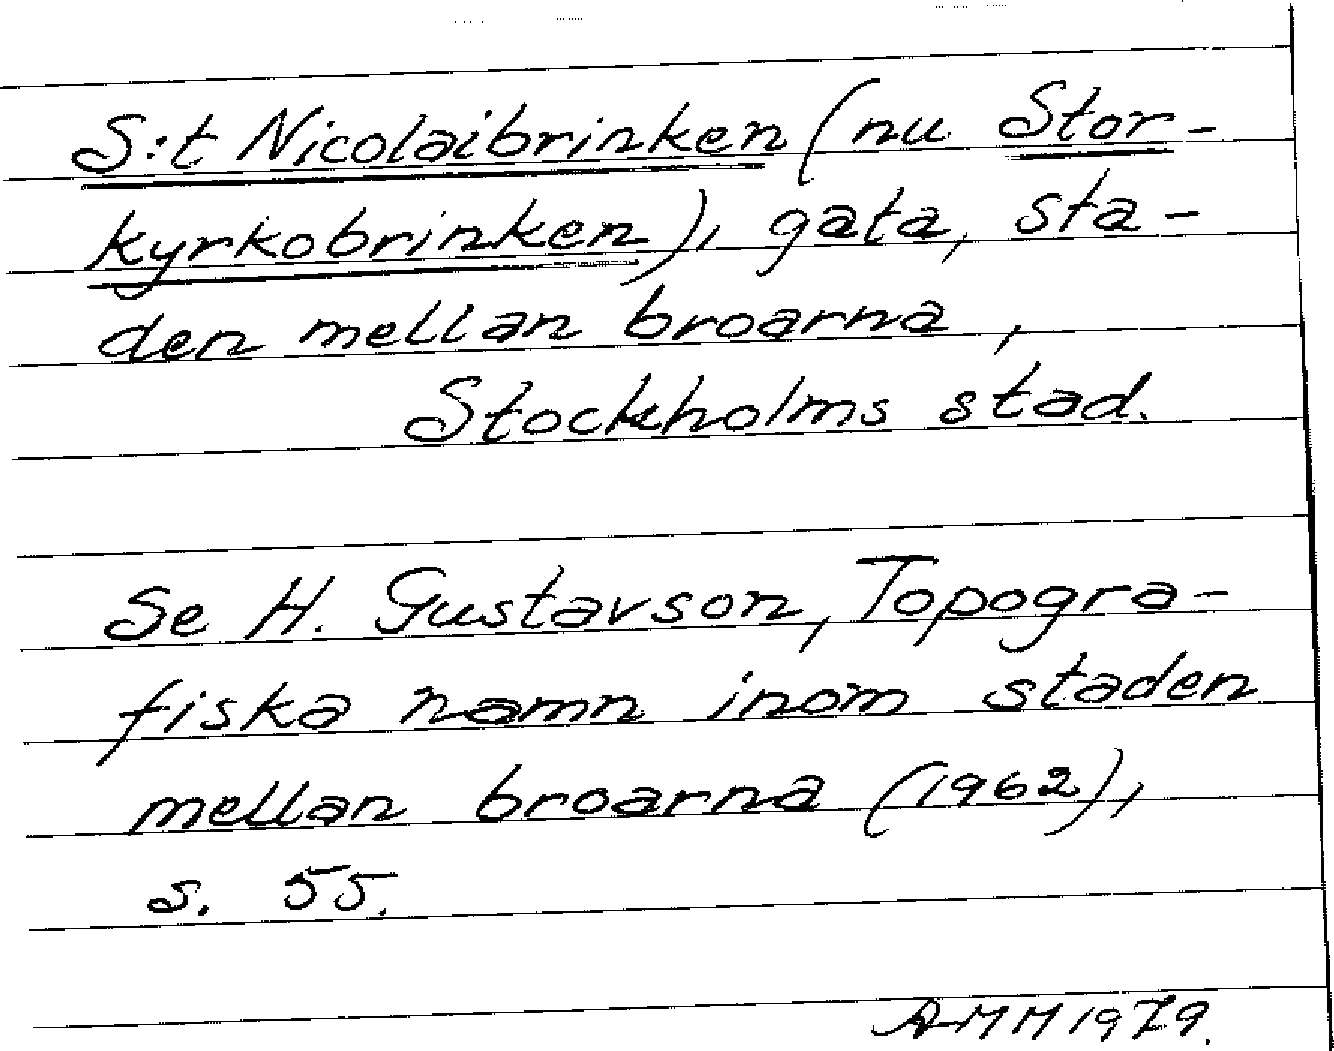 S:t Nicolaibrinken (nu Stor-
kyrkobrinken), gata, sta-
den mellan broarna,
Stockholms stad.
Se H. Gustavson, Topogra-
fiska namn inom staden
mellan broarna (1962),
s. 55.
AMM 1979.